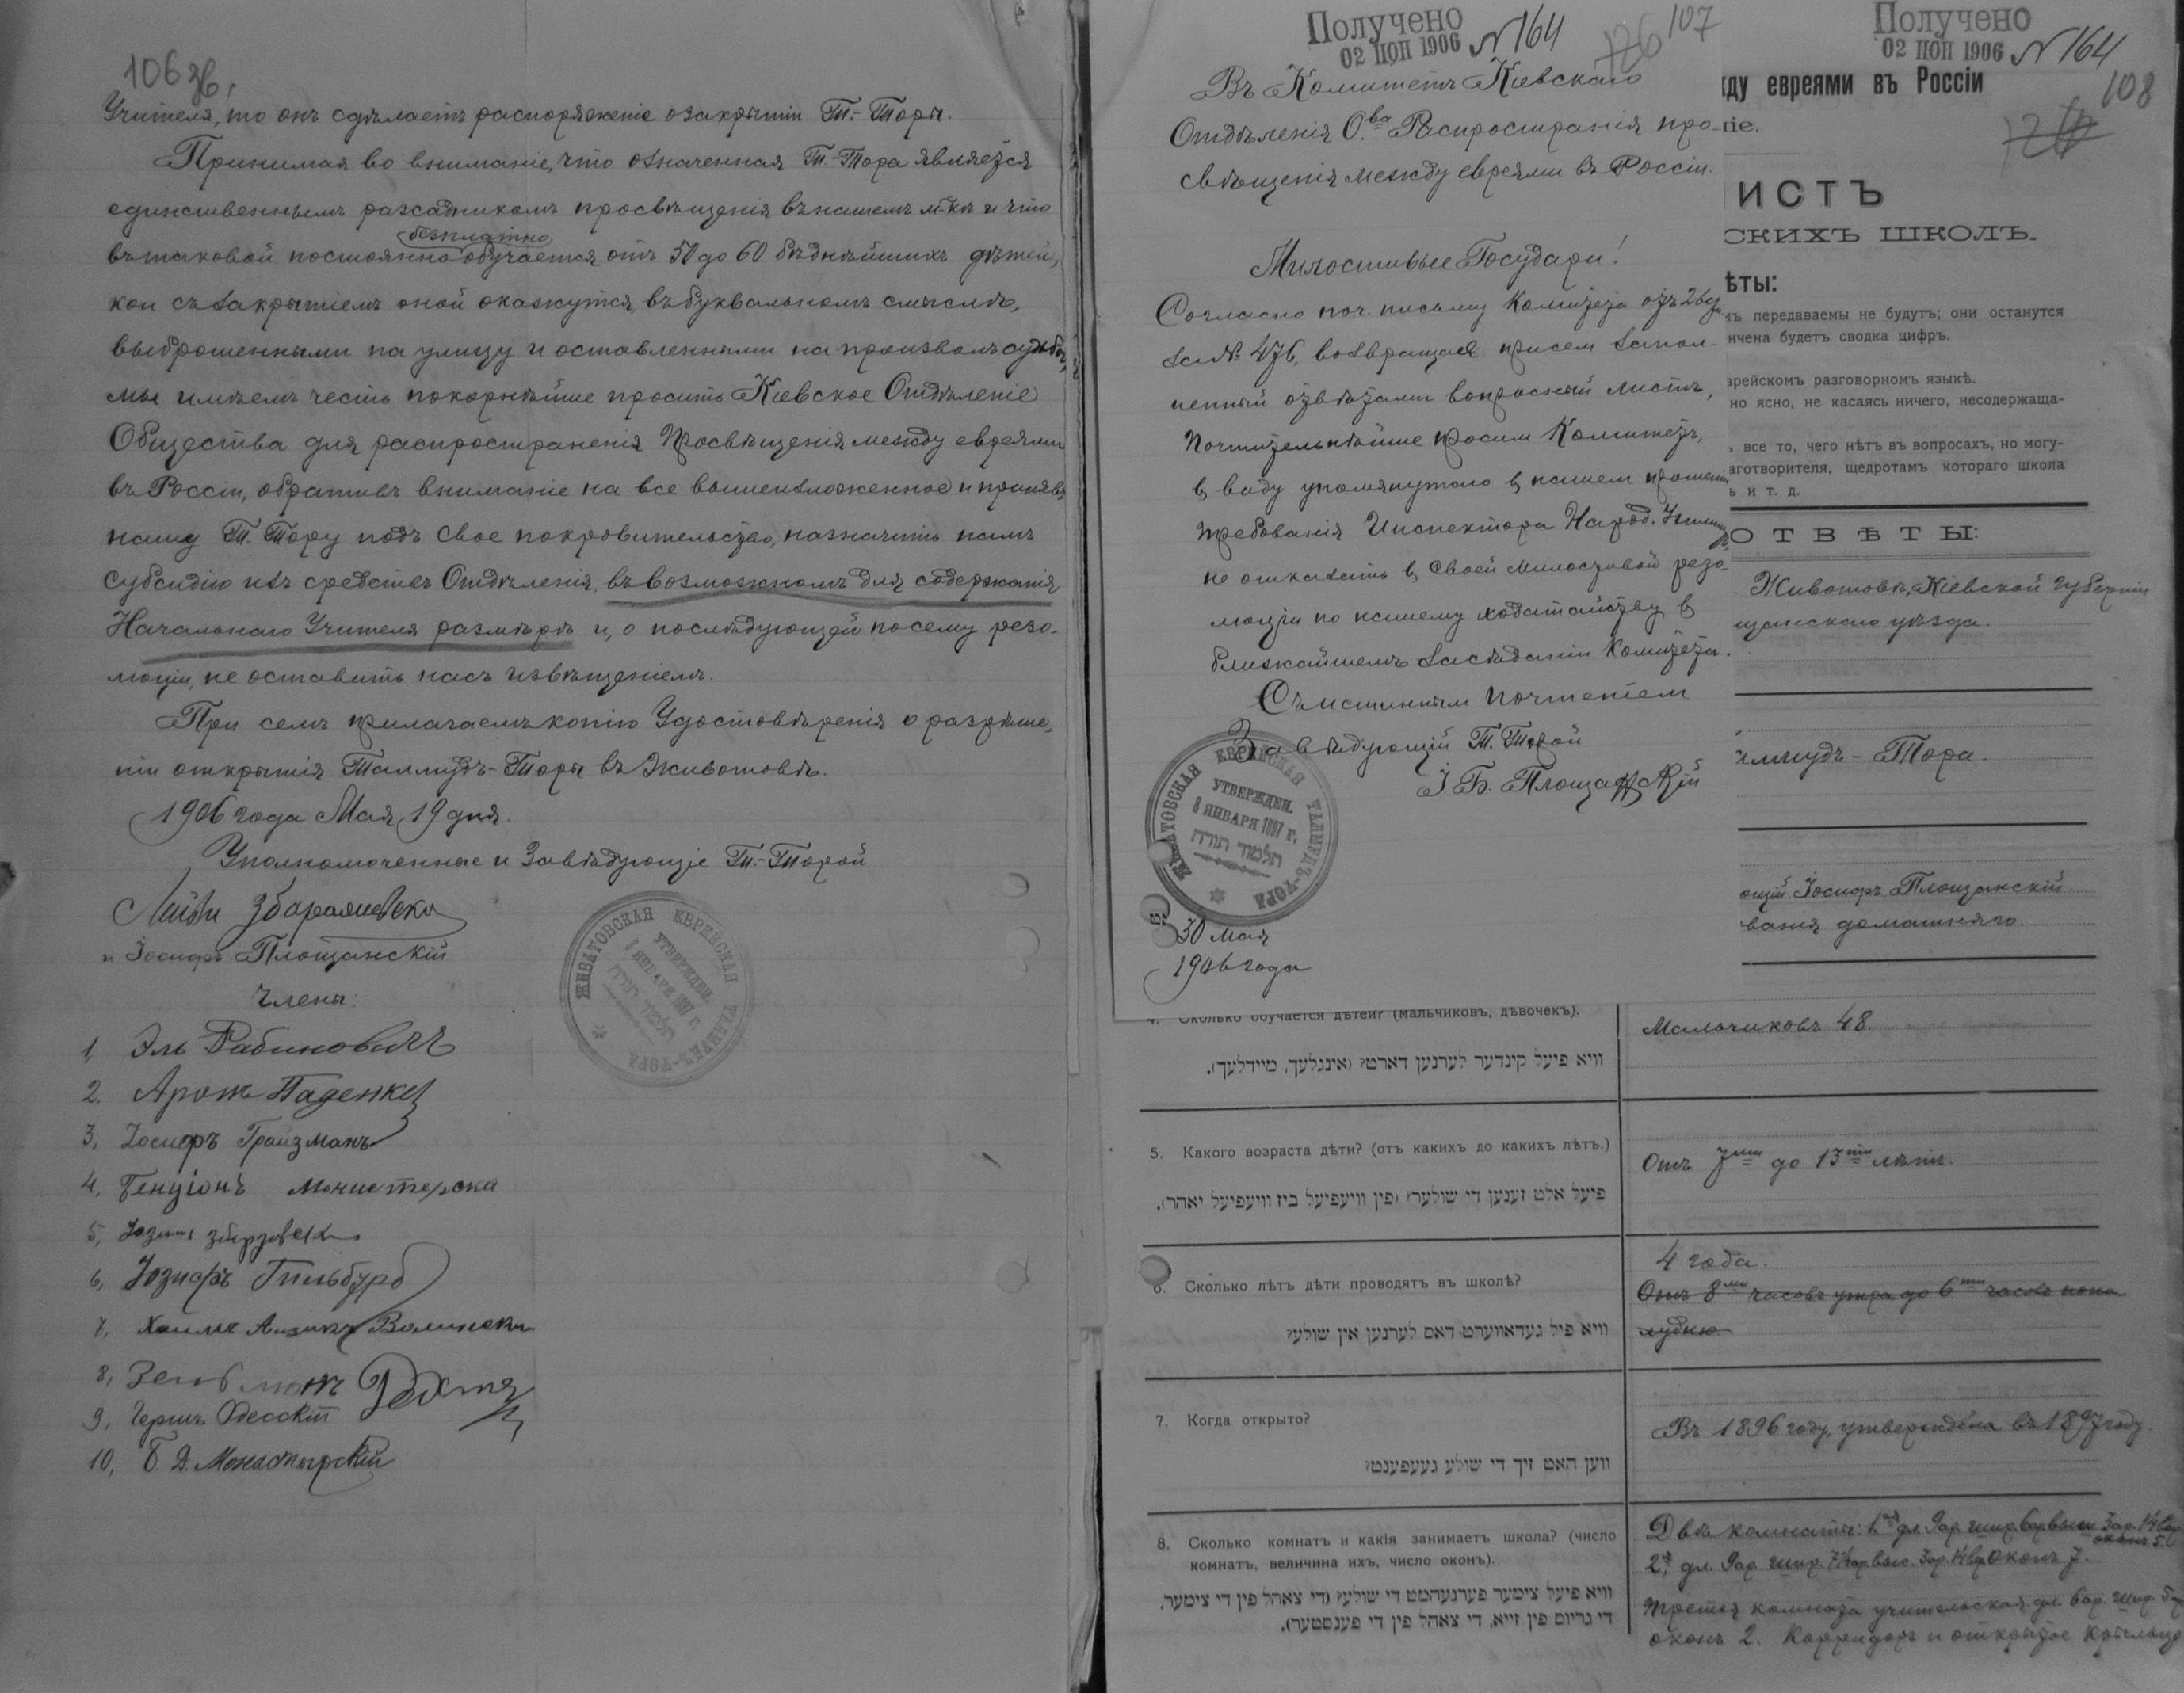 106 зв.
Учителя, то онъ сдѣлаетъ распоряженіе о закрытіи Т.-Торы.
Принимая во вниманіе, что означенная Т.-Тора является
единственнымъ разсадникомъ просвѣщенія въ нашемъ м-кѣ и что
безплатно
въ таковой постоянно обучается отъ 50 до 60 бѣднѣйшихъ дѣтей,
кои съ закрытіемъ оной окажутся, въ буквальномъ смыслѣ,
выброшенными на улицу и оставленными на произволъ судьбы,
мы имѣемъ честь покорнѣйше просить Кіевское Отдѣленіе
Общества для распространенія Просвѣщенія между евреями
въ Россіи, обративъ вниманіе на все вышеизложенное и принявъ
нашу Т. Тору подъ свое покровительство, назначить намъ
субсидію изъ средствъ Отдѣленія, въ возможномъ для содержанія
Начальнаго Учителя размѣрѣ и, о послѣдующей по сему резо-
люціи, не оставить насъ извѣщеніемъ.
При семъ прилагаемъ копію Удостовѣренія о разрѣше-
ніи открытія Талмудъ-Торы въ Животовѣ.
1906 года Мая 19 дня.
Уполномоченные и Завѣдующіе Т.-Торой
и Іосифъ Площанскій
Члены:
1, Эль Рабиновичъ
2, Аронъ
3, Іосифъ Грайзманъ
4, Бенціонъ Монистерски
5,
6, Іозифъ Гильбурд
7, Хаимъ Айзикъ Валински
8,
9, Гершъ Одесскій
10, Б. Д. Монастырскій
ЖИВАТОВСКАЯ ЕВРЕЙСКАЯ ТАЛМУДЪ-ТОРА
УТВЕРЖДЕН.
8 ЯНВАРЯ 1897 г.
תלמוד תורה
Получено
02 ИЮН 1906 N 164
107
Въ Комитетъ Кіевскаго
Отдѣленія О.ва Распространія про-
свѣщенія между евреями въ Россіи.
Милостивые Государи!
Согласно поч. письму Комитета отъ 26 д.
за № 476, возвращаем присем запол-
ненный отвѣтами вопросный листъ,
Почтительнѣйше просим Комитетъ,
в виду упомянутаго в нашем прошеніи
требованія Инспектора Народ. Училищ,
не отказать в своей милостивой резо-
люціи по нашему ходатайству в
ближайшемъ засѣданіи Комитета.
Съ истинным почтеніем
Завѣдующій Т. Торой
І Б. Площанскій
ЖИВАТОВСКАЯ ЕВРЕЙСКАЯ ТАЛМУДЪ-ТОРА
УТВЕРЖДЕН.
8 ЯНВАРЯ 1897 г.
תלמוד תורה
30 мая
1906 года
Получено
02 ИЮН 1906 N 164
108
ду евреями въ Россіи
ніе.
ИСТЪ
СКИХЪ ШКОЛЪ.
ѣты:
мъ передаваемы не будутъ; они останутся
нчена будетъ сводка цифръ.
врейскомъ разговорномъ языкѣ.
но ясно, не касаясь ничего, несодержаща-
, все то, чего нѣтъ въ вопросахъ, но могу-
аготворителя, щедротамъ котораго школа
ь и т. д.
ОТВѢТЫ:
Животовъ, Кіевской губерніи
щанскаго уѣзда.
лмудъ-Тора.
ощій Іосифъ Площанскій
ванія домашняго.
4. Сколько обучается дѣтей? (мальчиковъ, дѣвочекъ).
וויא פיעל קינדער לערנען דארט? (אינגלעך, מיידלעך).
Мальчиковъ 48.
5. Какого возраста дѣти? (отъ какихъ до какихъ лѣтъ.)
פיעל אלט זענען די שולער? (פין וויעפיעל ביז וויעפיעל יאהר).
Отъ 7ми до 13ти лѣтъ.
6. Сколько лѣтъ дѣти проводятъ въ школѣ?
וויא פיל געדאווערט דאס לערנען אין שולע?
4 года.
Отъ 8ми часовъ утра до 6ти часовъ попо
лудню
7. Когда открыто?
ווען האט זיך די שולע געעפענט?
Въ 1896 году, утверждена въ 1897 году.
8. Сколько комнатъ и какія занимаетъ школа? (число
комнатъ, величина ихъ, число оконъ).
וויא פיעל צימער פערנעהמט די שולע? (די צאהל פין די צימער,
די גרויס פין זייא, די צאהל פין די פענסטער).
Двѣ комнаты: 1ая дл. 9 ар. шир. 6 ар. выш. 3 ар. 14 вер.
оконъ 5.
2я дл. 9 ар. шир. 7 ар. выс. 3 ар. 14 вр. оконъ 7.
третья комната учительская дл. 6 ар. шир.
оконъ 2. Корридоръ и открытое крыльцо